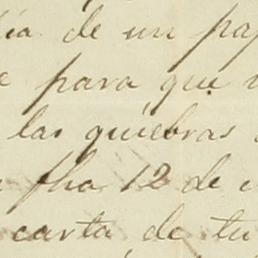 de un
para que
las quiebras
fha 12 de
carta de tu